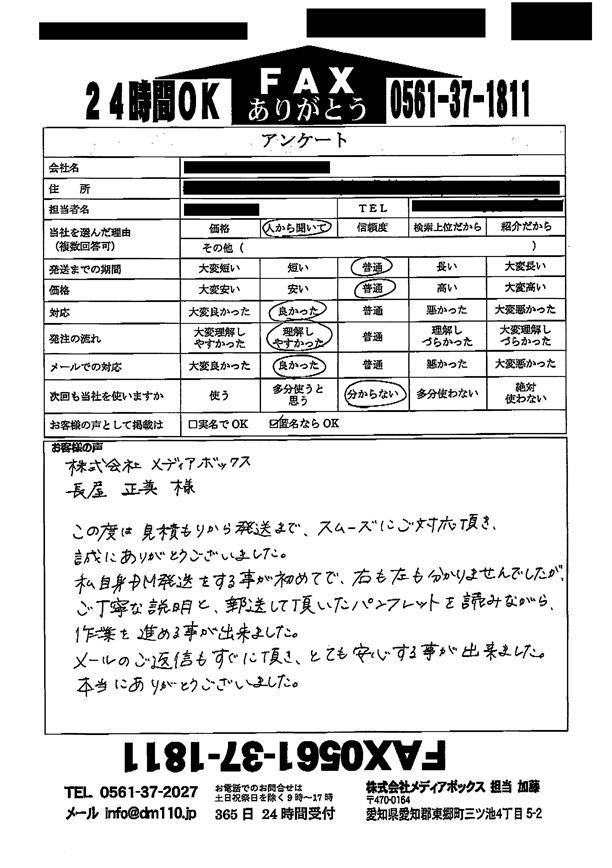 FAX
ありがとう
24時間OK
0561-37-1811
アンケート
会社名
住 所
担当者名 TEL
当社を選んだ理由(複数回答可) 価格 人から聞いて 信頼度 検索上位だから 紹介だから
その他( )
発送までの期間 大変短い 短い 普通 長い 大変長い
価格 大変安い 安い 普通 高い 大変高い
対応 大変良かった 良かった 普通 悪かった 大変悪かった
発注の流れ 大変理解しやすかった 理解しやすかった 普通 理解しづらかった 大変理解しづらかった
メールでの対応 大変良かった 良かった 普通 悪かった 大変悪かった
次回も当社を使いますか 使う 多分使うと思う 分からない 多分使わない 絶対使わない
お客様の声として掲載は □実名でOK ☑匿名ならOK
お客様の声
株式会社 メディアボックス
長屋 正美 様
この度は見積もりから発送まで、スムーズにご対応頂き、
誠にありがとうございました。
私自身DM発送をする事が初めてで、右も左も分かりませんでしたが、
ご丁寧な説明と、郵送して頂いたパンフレットを読みながら、
作業を進める事が出来ました。
メールのご返信もすぐに頂き、とても安心する事が出来ました。
本当にありがとうございました。
FAX0561-37-1811
TEL 0561-37-2027
メール info@dm110.jp
お電話でのお問合せは
土日祝祭日を除く9時~17時
365日 24時間受付
株式会社メディアボックス 担当 加藤
〒470-0164
愛知県愛知郡東郷町三ツ池4丁目5-2